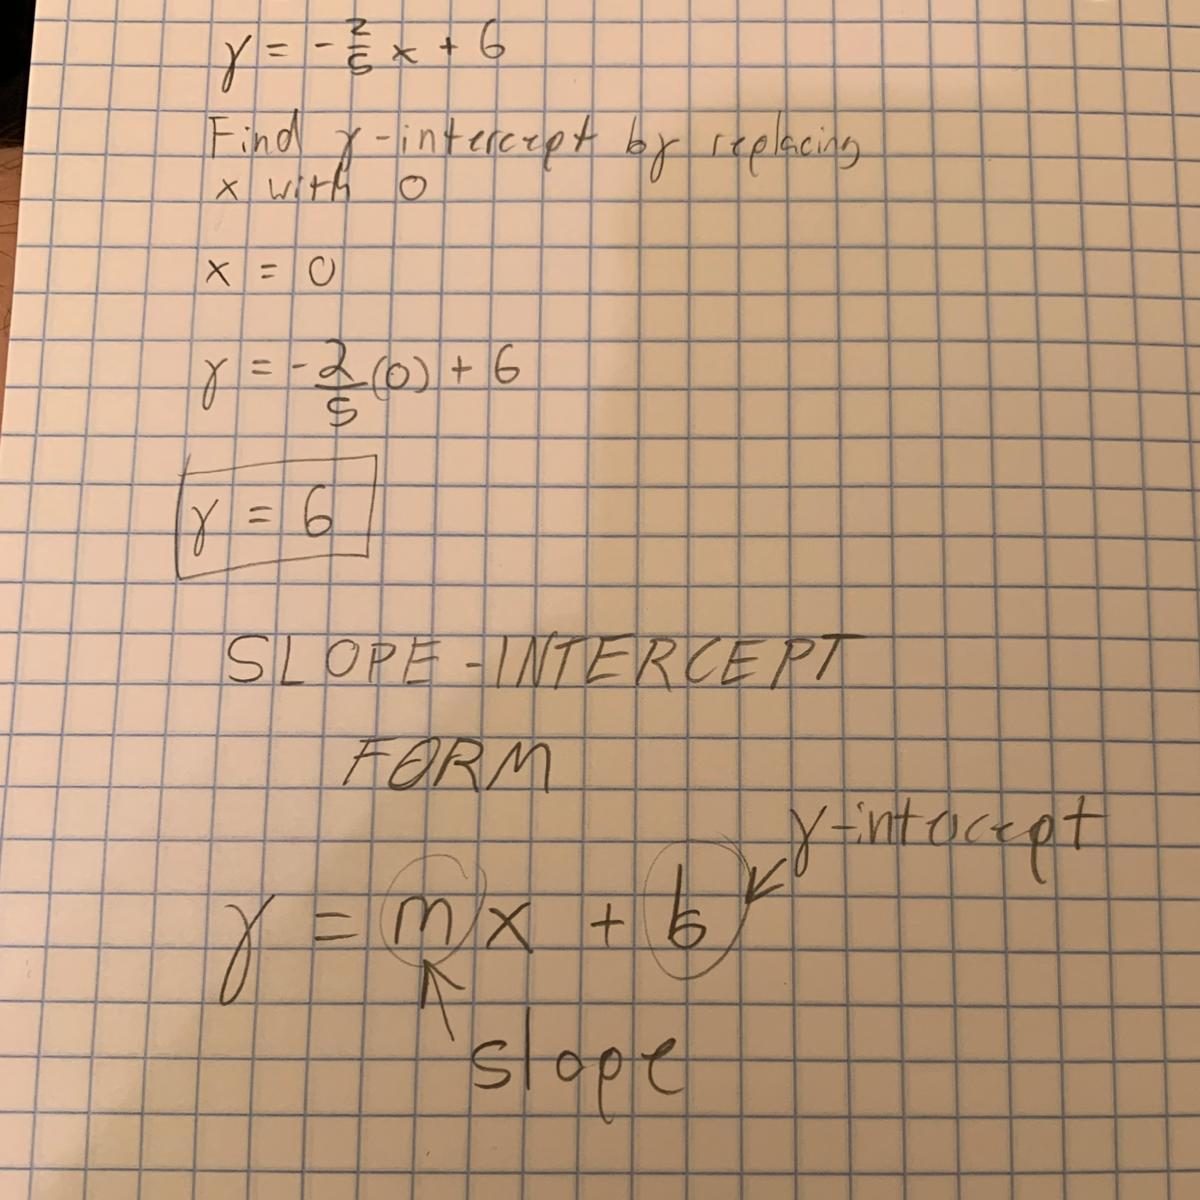 y = -2/5 x + 6
Find y-intercept by replacing
x with 0
x = 0
y = -2/5 (0) + 6
y = 6
SLOPE-INTERCEPT
FORM
y-intercept
y = mx + b
slope